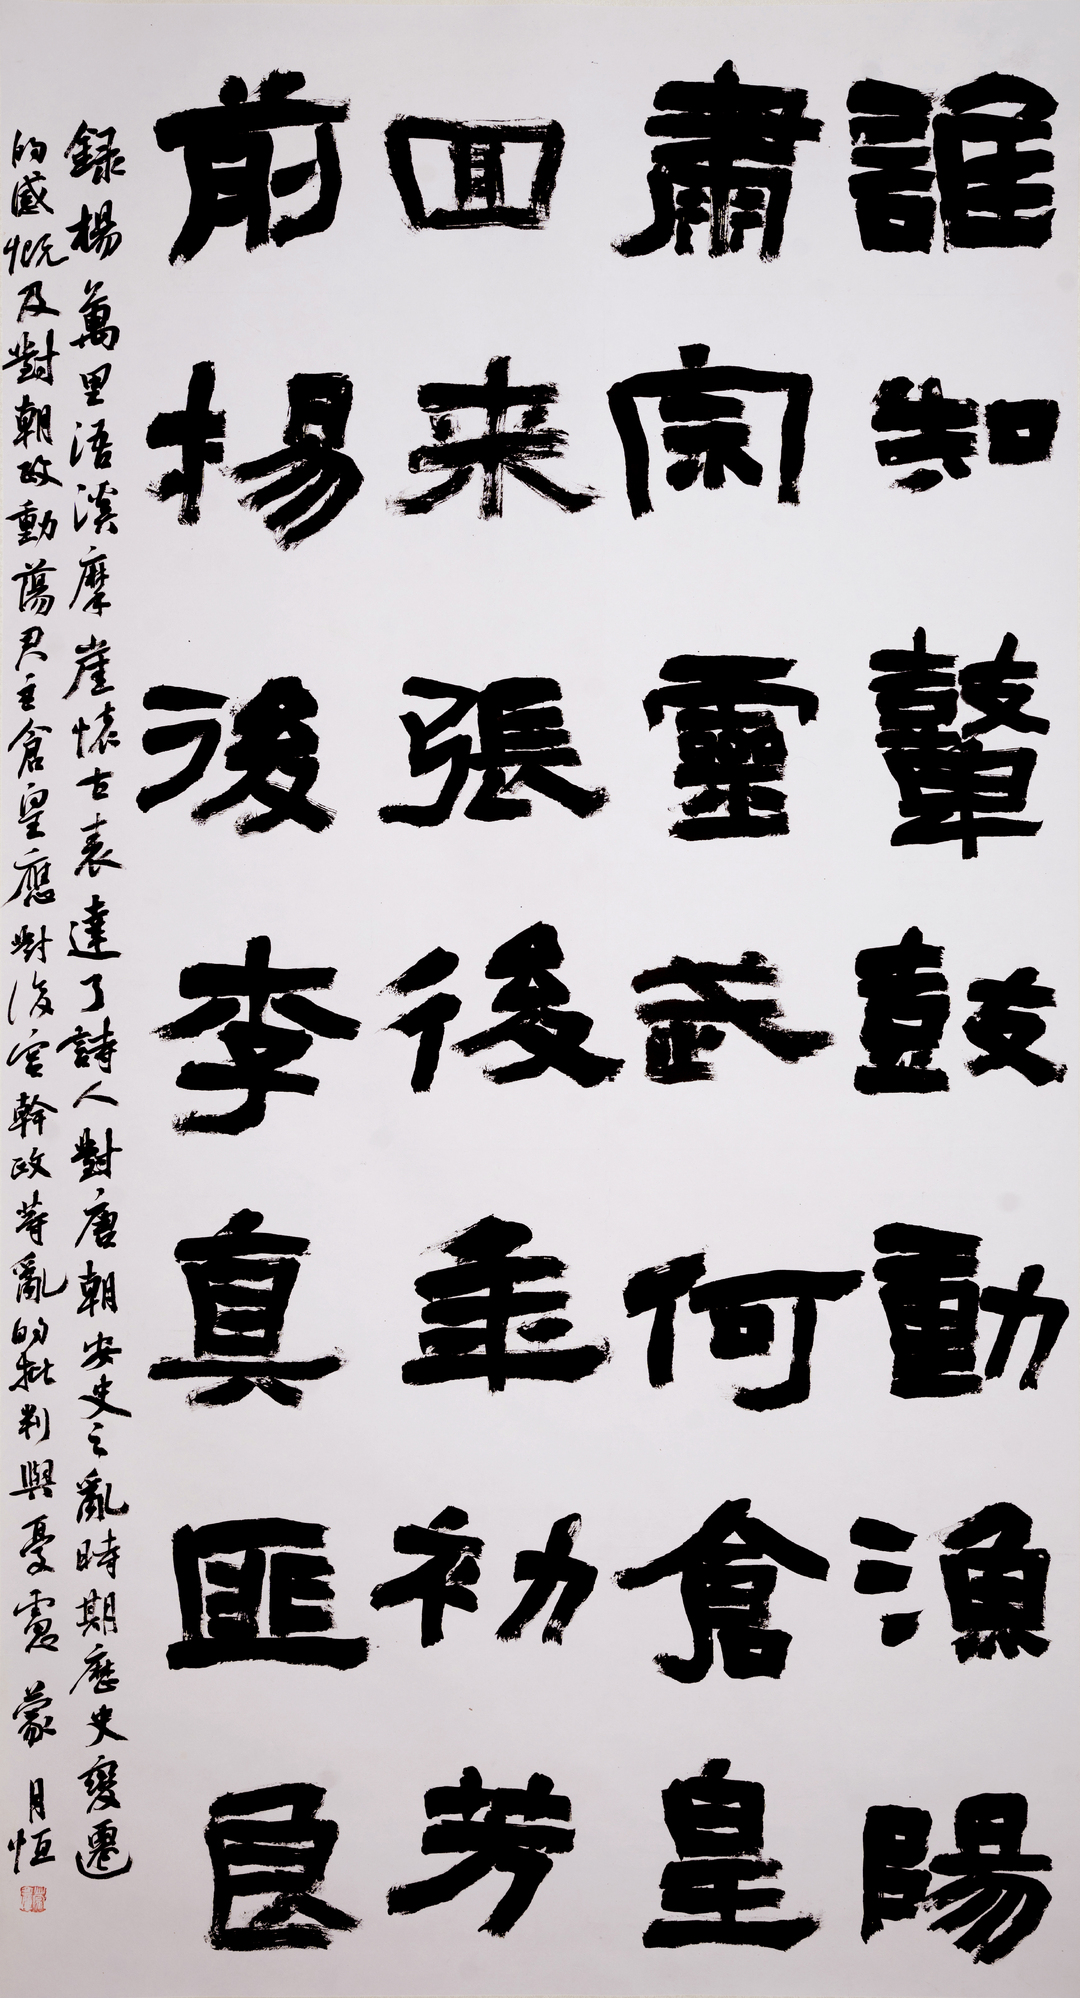 誰知鼙鼓動漁陽
肅宗靈武何倉皇
回来張後年初芳
前楊後李真匪良
錄楊萬里浯溪摩崖懷古表達了詩人對唐朝安史之亂時期歷史變遷
的感慨及對朝政動蕩君主倉皇應對後宮幹政等亂的批判與憂慮 蒙月恆